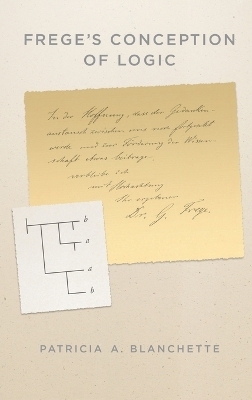 FREGE'S CONCEPTION
OF LOGIC
In der Hoffnung, dass der Gedanken-
austausch zwischen uns noch fortgesetzt
werde und zur Förderung der Wissen-
schaft etwas beitrage
verbleibe ich
mit Hochachtung
Ihr ergebener
Dr. G. Frege.
b
a
a
b
PATRICIA A. BLANCHETTE